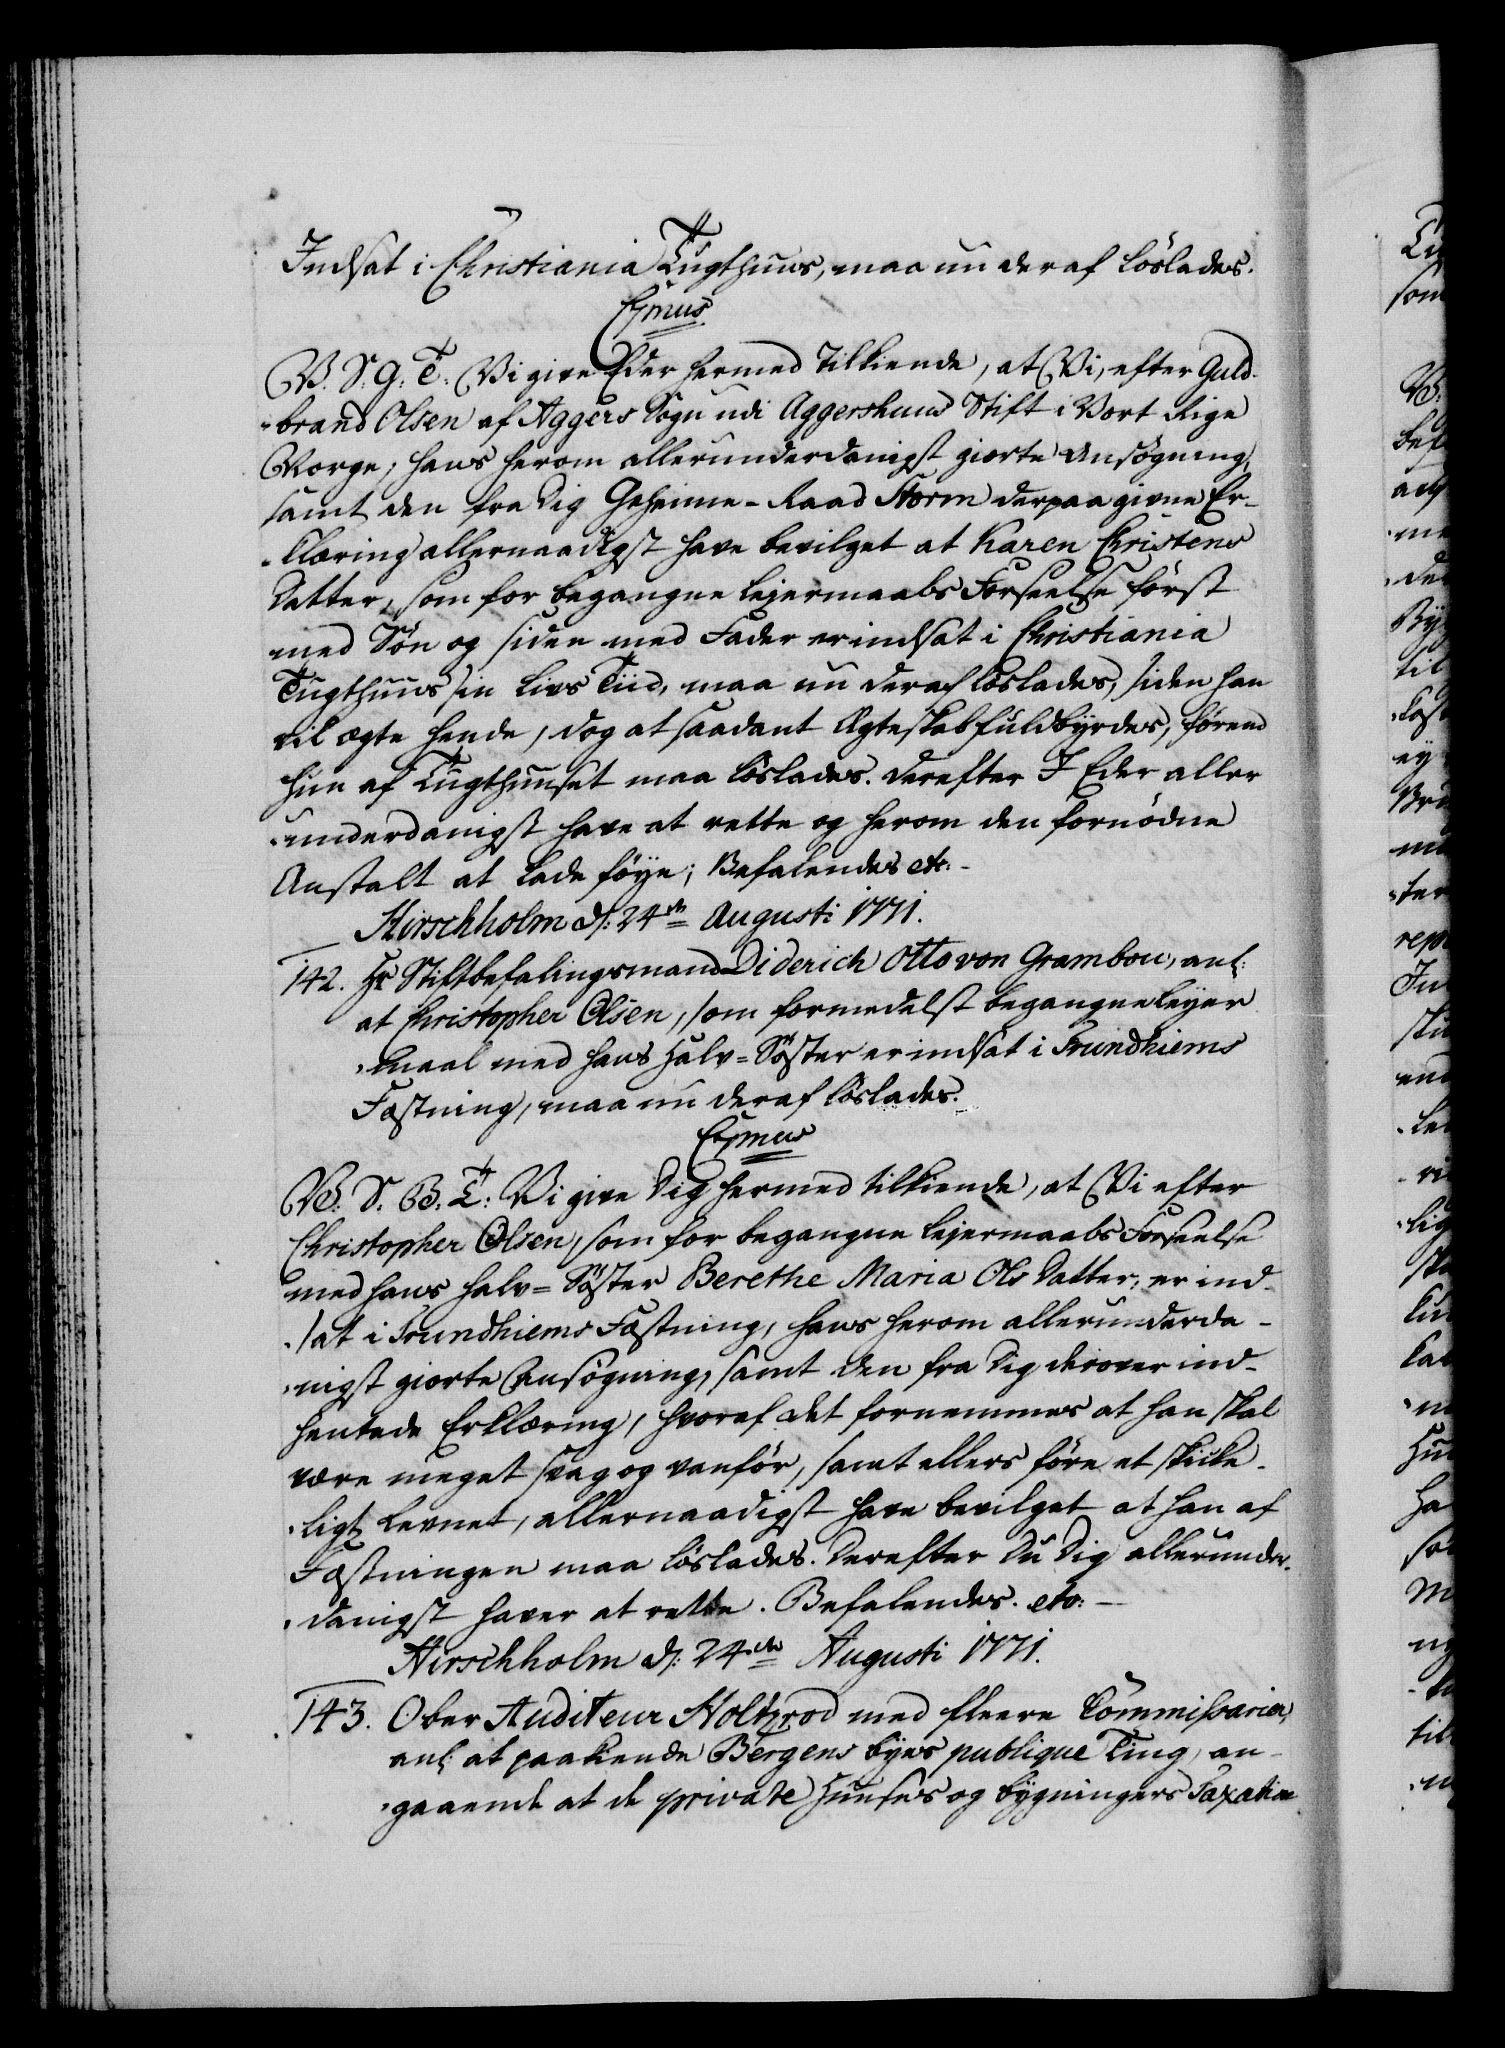 Indsat i Christiania Tugthuus, maa nu deraf löslades.
Cðmus
V. S. G. T. Vi give Eder hermed tilkiende, at Vi, efter Guld-
brand Olsen af Aggers Sogn udi Aggershuus Stift i Vort Rige
Norge, hans herom allerunderdanigst giorte Ansögning,
samt den fra Dig Geheime-Raad Storm derpaa givne Er-
klæring allernaadigst have bevilget at Karen Christens
Datter, som for begangne Lejermaals Forseelse först
med Sön og siden med Fader er indsat i Christiania
Tugthuus sin Livs Tiid, maa nu deraf löslades, siden han
vil ægte hende, dog at saadant Ægteskab fuldbyrdes, förend
hun af Tugthuuset maa löslades. Derefter I Eder aller
underdanigst have at rette og herom den fornödne
Anstalt at lade föye; Befalendes etc:-
Hirschholm d: 24de Augusti 1771.
142. Hr Stiftbefalingsmand Diderich Otto von Grambow, anl:
at Christopher Olsen, som formedelst begangne Leyer
maal med hans Halv-Söster er indsat i Trundhiems
Fæstning, maa nu deraf löslades.
V. S. G. T: Vi give Dig hermed tilkiende, at Vi efter
Christopher Olsen, som for begangne Lejermaals Forseelse
med hans Halv-Söster Berethe Maria Ols Datter, er ind-
sat i Trundhiems Fæstning, hans herom allerunderda-
nigst giorte Ansögning, samt den fra Dig derover ind-
hentede Erklæring, hvoraf det fornemmes at han skal
være meget svag og vanför, samt ellers före et skikke-
ligt Levnet, allernaadigst have bevilget at han af
Fæstningen maa löslades. Derefter Du Dig allerunder-
danigst haver at rette. Befalendes. etc:-
Hirschholm d: 24de Augusti 1771.
143. Ober Auditeur Holtzrod med fleere Commissarier,
anl: at paakiende Bergens byes publique Ting, an-
gaaende at de private Huuses og bygningers Taxation